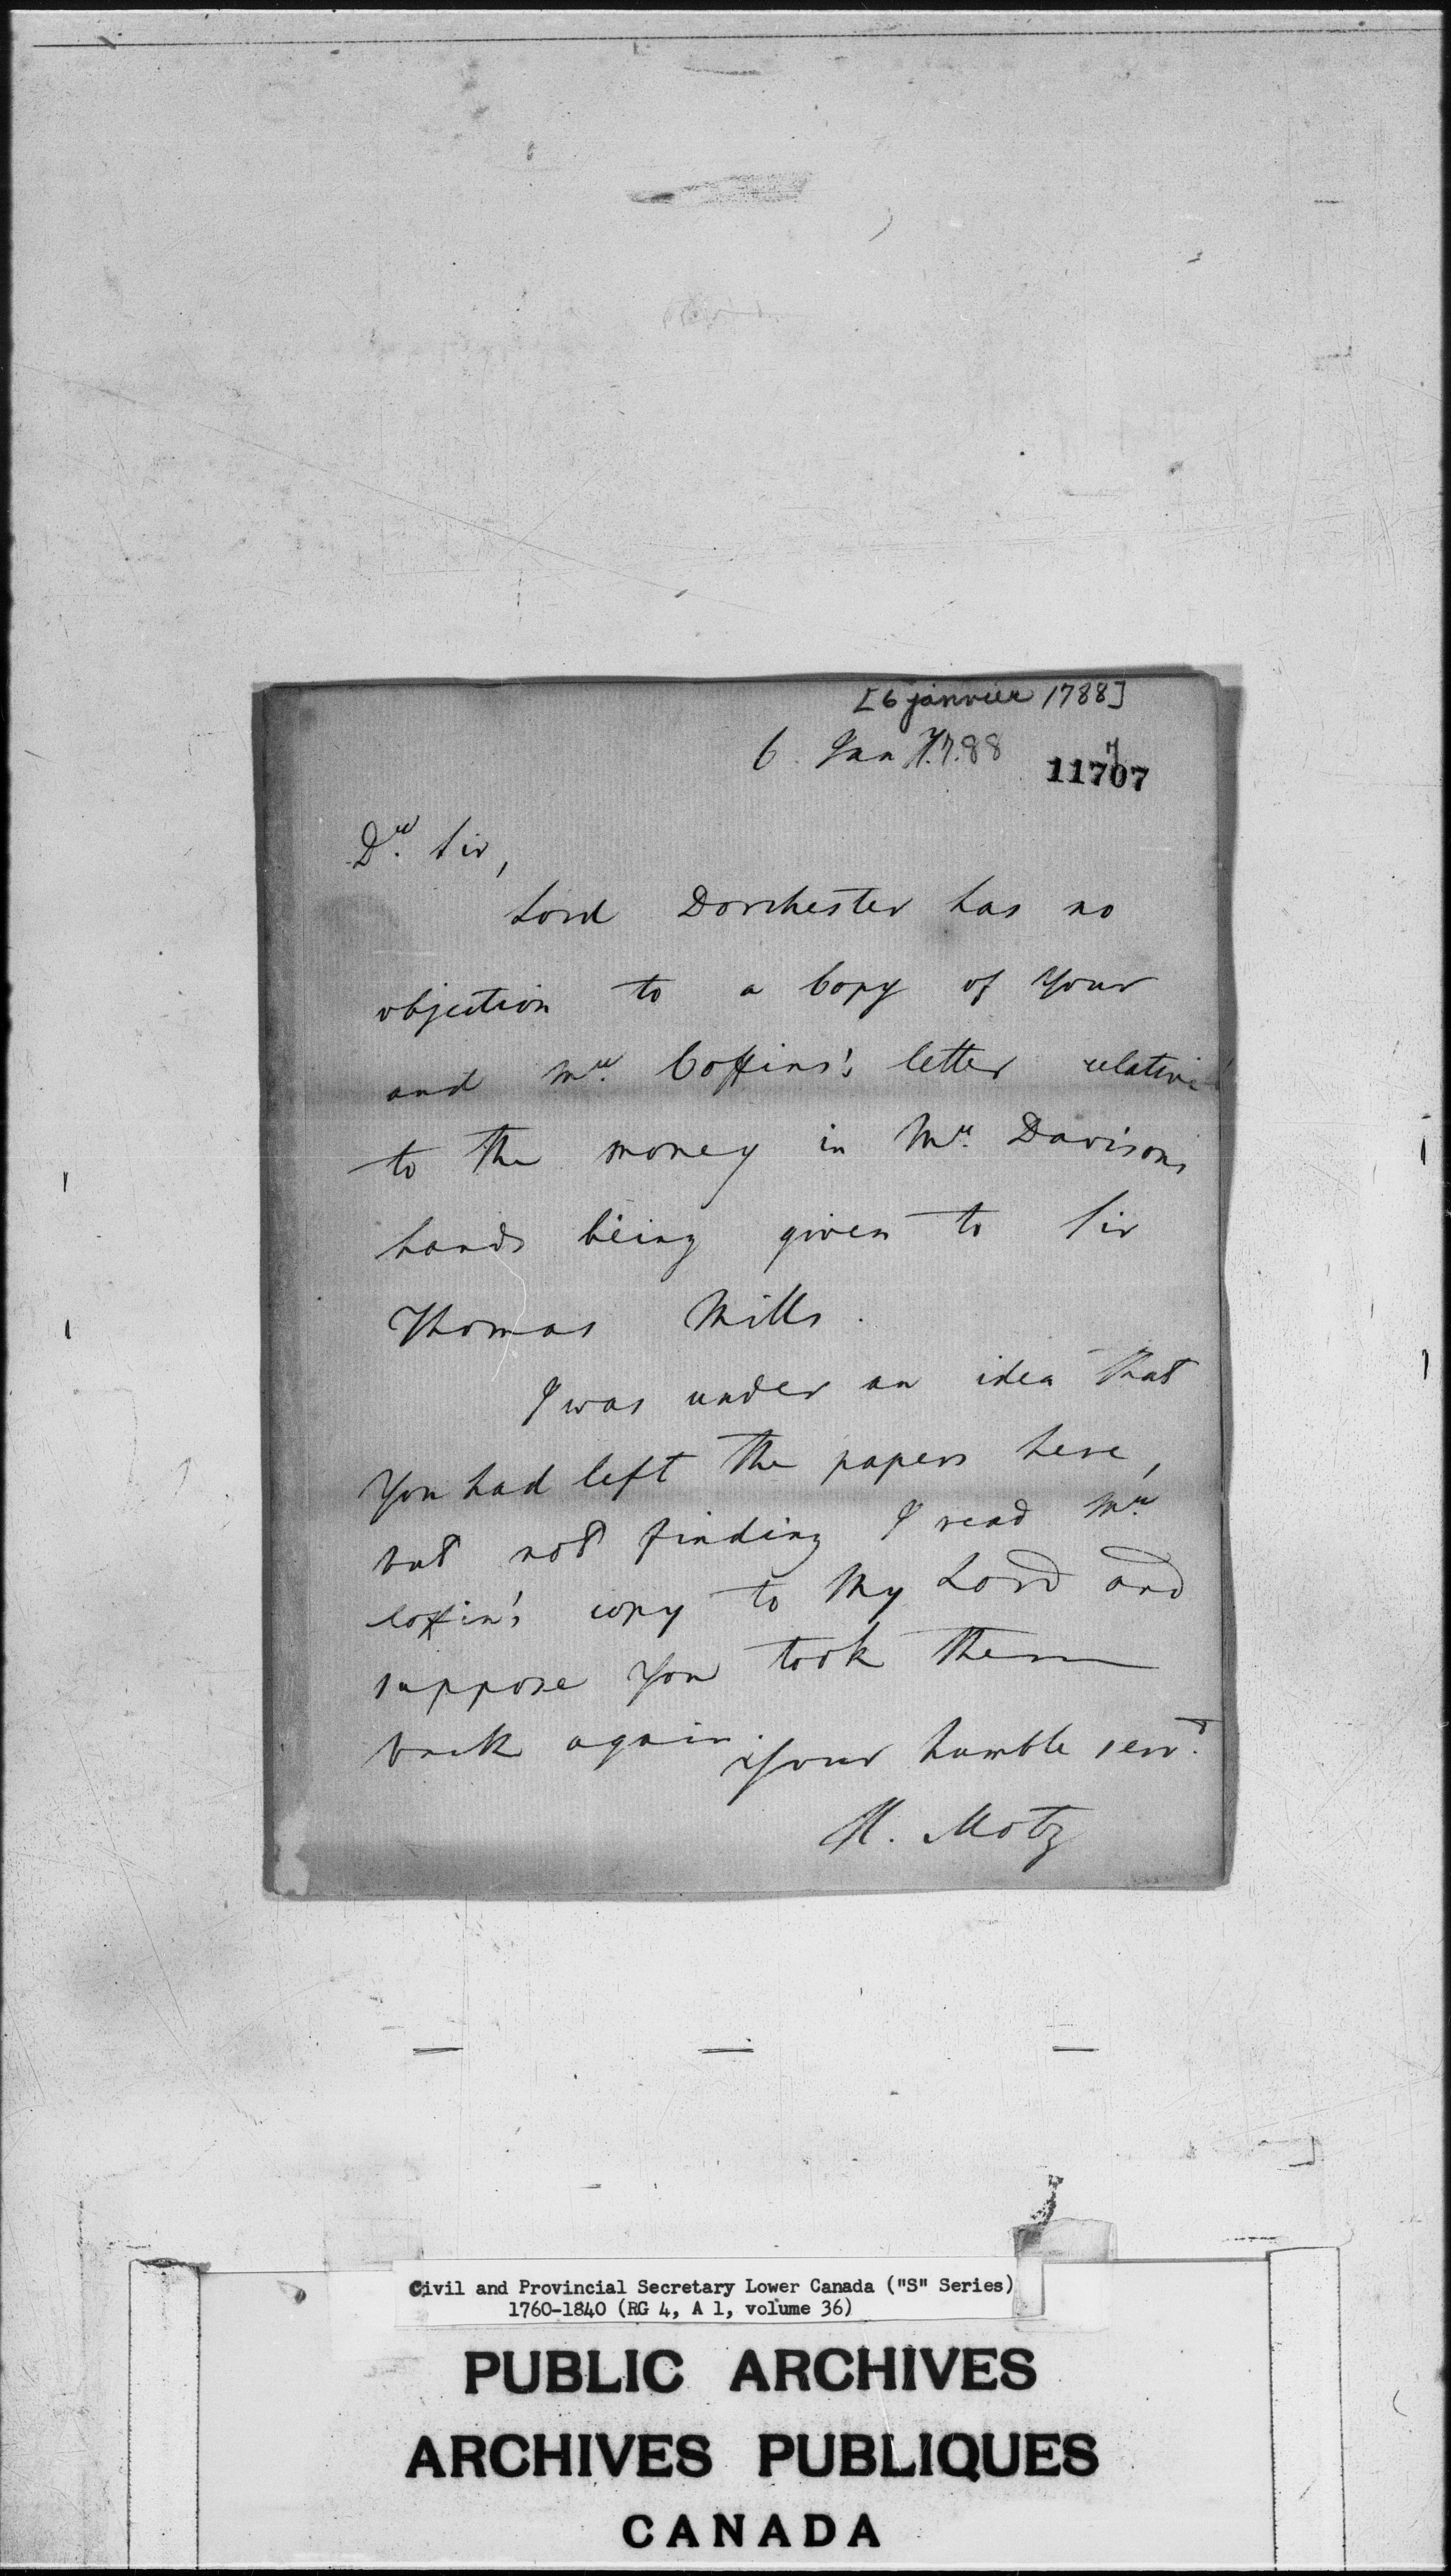 [6 janvier 1788]
6. Jan 1788
11707
Dr. Sir,
Lord Dorchester has no
objection to a Copy of Your
and Mr. Coffins's letter relative
to the money in Mr. Davisons
hands being given to Sir
Thomas Mills.
I was under an idea that
You had left the papers here,
but not finding I read Mr
Coffin's copy to My Lord and
suppose You took them
back again. Your humble servt.
H. Motz
Civil and Provincial Secretary Lower Canada ("S" Series)
1760-1840 (RG 4, A 1, volume 36)
PUBLIC ARCHIVES
ARCHIVES PUBLIQUES
CANADA